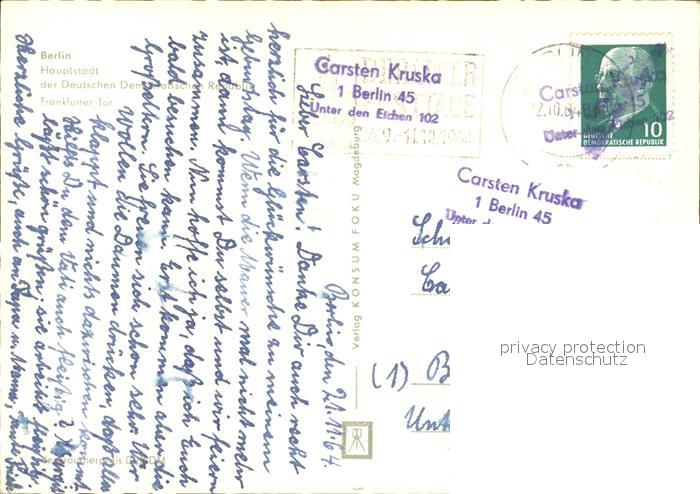 Berlin
Hauptstadt
der Deutschen Demokratischen Republik
Frankfurter Tor
Carsten Kruska
1 Berlin 45
Unter den Eichen 102
BERLINER
FESTTAGE
26.9.-11.10.1964
Carsten Kruska
Berlin 45
Unter den Eichen 102
22.10.64
10
DEUTSCHE
DEMOKRATISCHE REPUBLIK
Carsten Kruska
1 Berlin 45
Unter
Berlin, den 21.10.64
Lieber Carsten! Danke Dir auch recht
herzlich für die Glückwünsche zu meinem
Geburtstag. Wenn die Mauer mal nicht mehr
ist, dann kommst Du selbst und wir feiern
zusammen. Nun hoffe ich ja, daß ich Euch
bald besuchen kann. Erst kommen aber die
Großeltern. Sie freuen sich schon sehr. Wir
wollen die Daumen drücken, daß alles
klappt und nichts dazwischen kommt.
Hilfst Du dem Vati auch fleißig?
läßt schön grüßen, sie arbeitet fleißig.
Herzliche Grüße, auch an
Verlag KONSUM FOKU Magdeburg
(1) B
Unt
privacy protection
Datenschutz